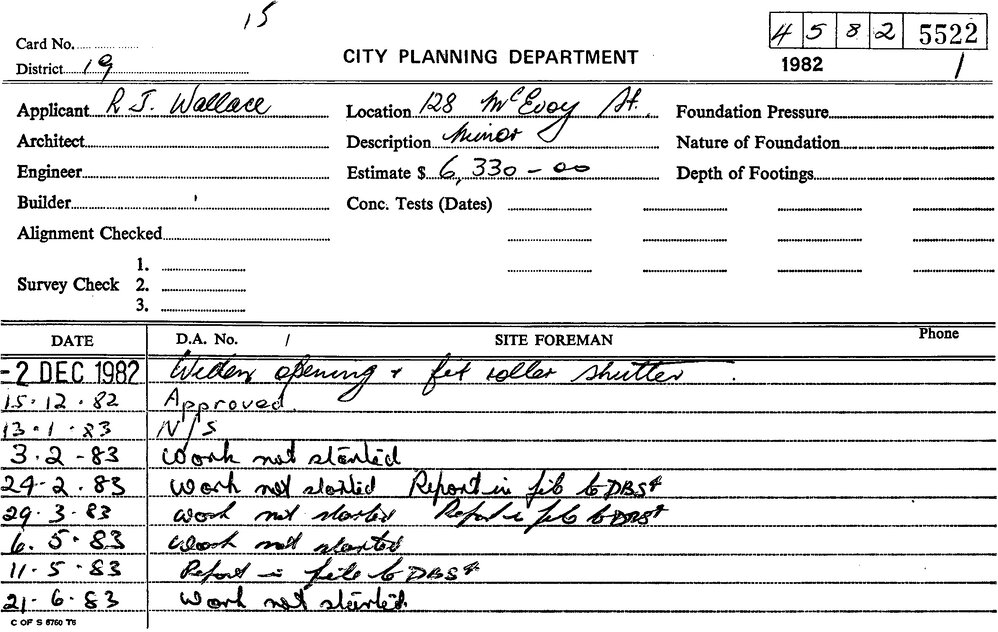 15
Card No.
4 5 8 2 5522
District 19
CITY PLANNING DEPARTMENT
1982 1
Applicant R J. Wallace Location 128 McEvoy St. Foundation Pressure
Architect Description Minor Nature of Foundation
Engineer Estimate $ 6,330-00 Depth of Footings
Builder Conc. Tests (Dates)
Alignment Checked
1.
Survey Check 2.
3.
DATE D.A. No. / SITE FOREMAN Phone
-2 DEC 1982 Widen opening + fit roller shutter.
15.12.82 Approved.
13.1.83 N/S
3.2-83 Work not started
24-2.83 Work not started Report in file to DBS
29.3.83 Work not started Report in file to DBS
6.5.83 Work not started
11.5.83 Report in file to DBS
21-6.83 Work not started.
C OF S 6760 T6